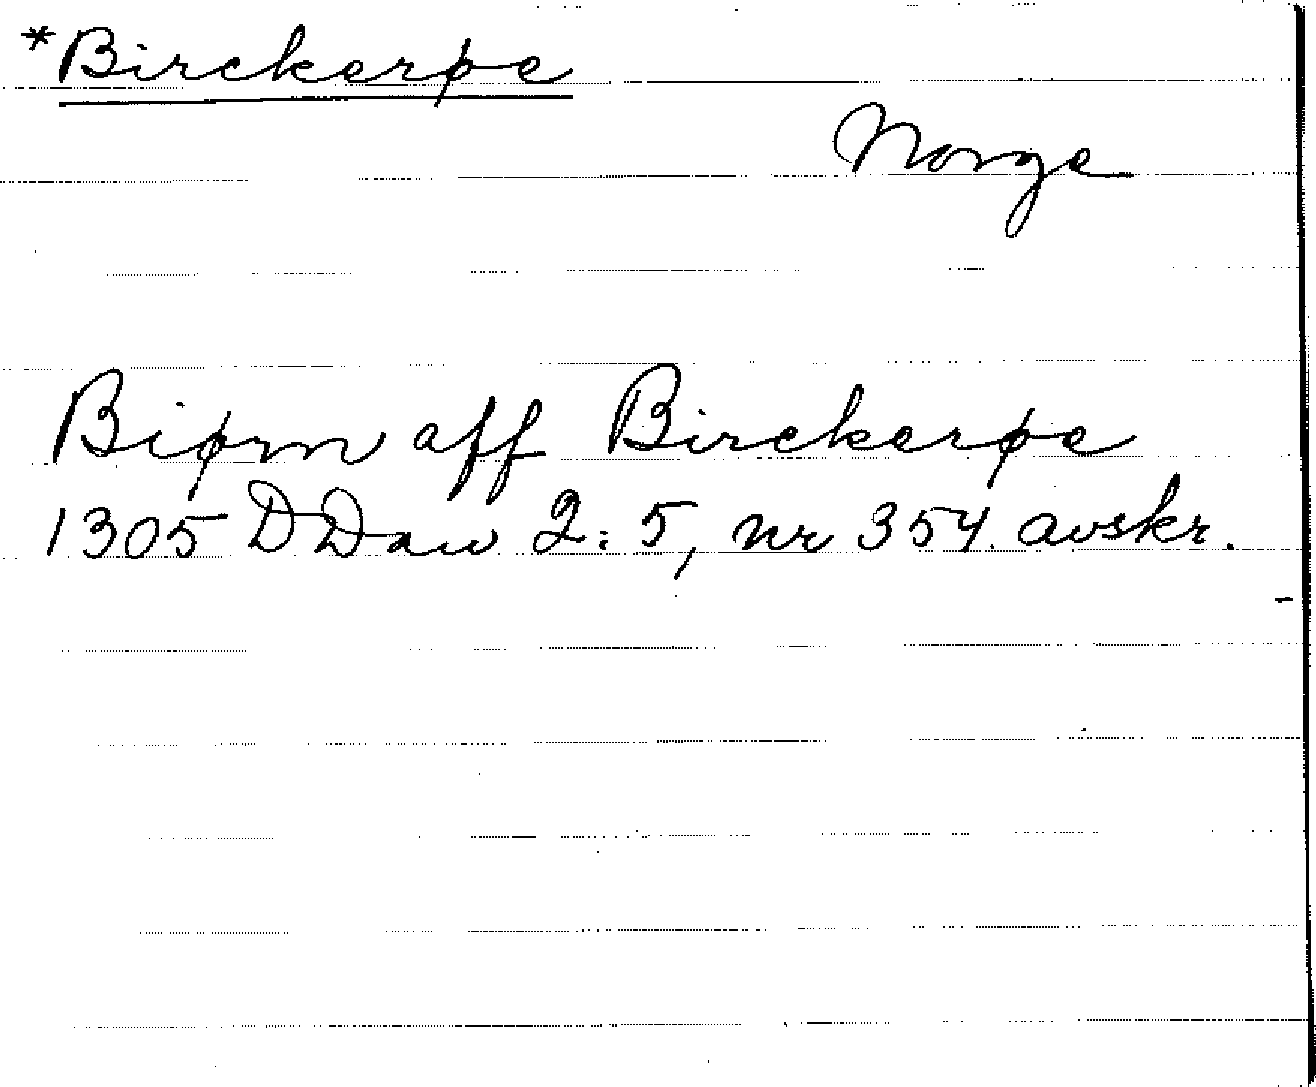 *Birckerøe
Norge
Biørn aff Birckerøe
1305 DDan 2:5, nr 354. avskr.